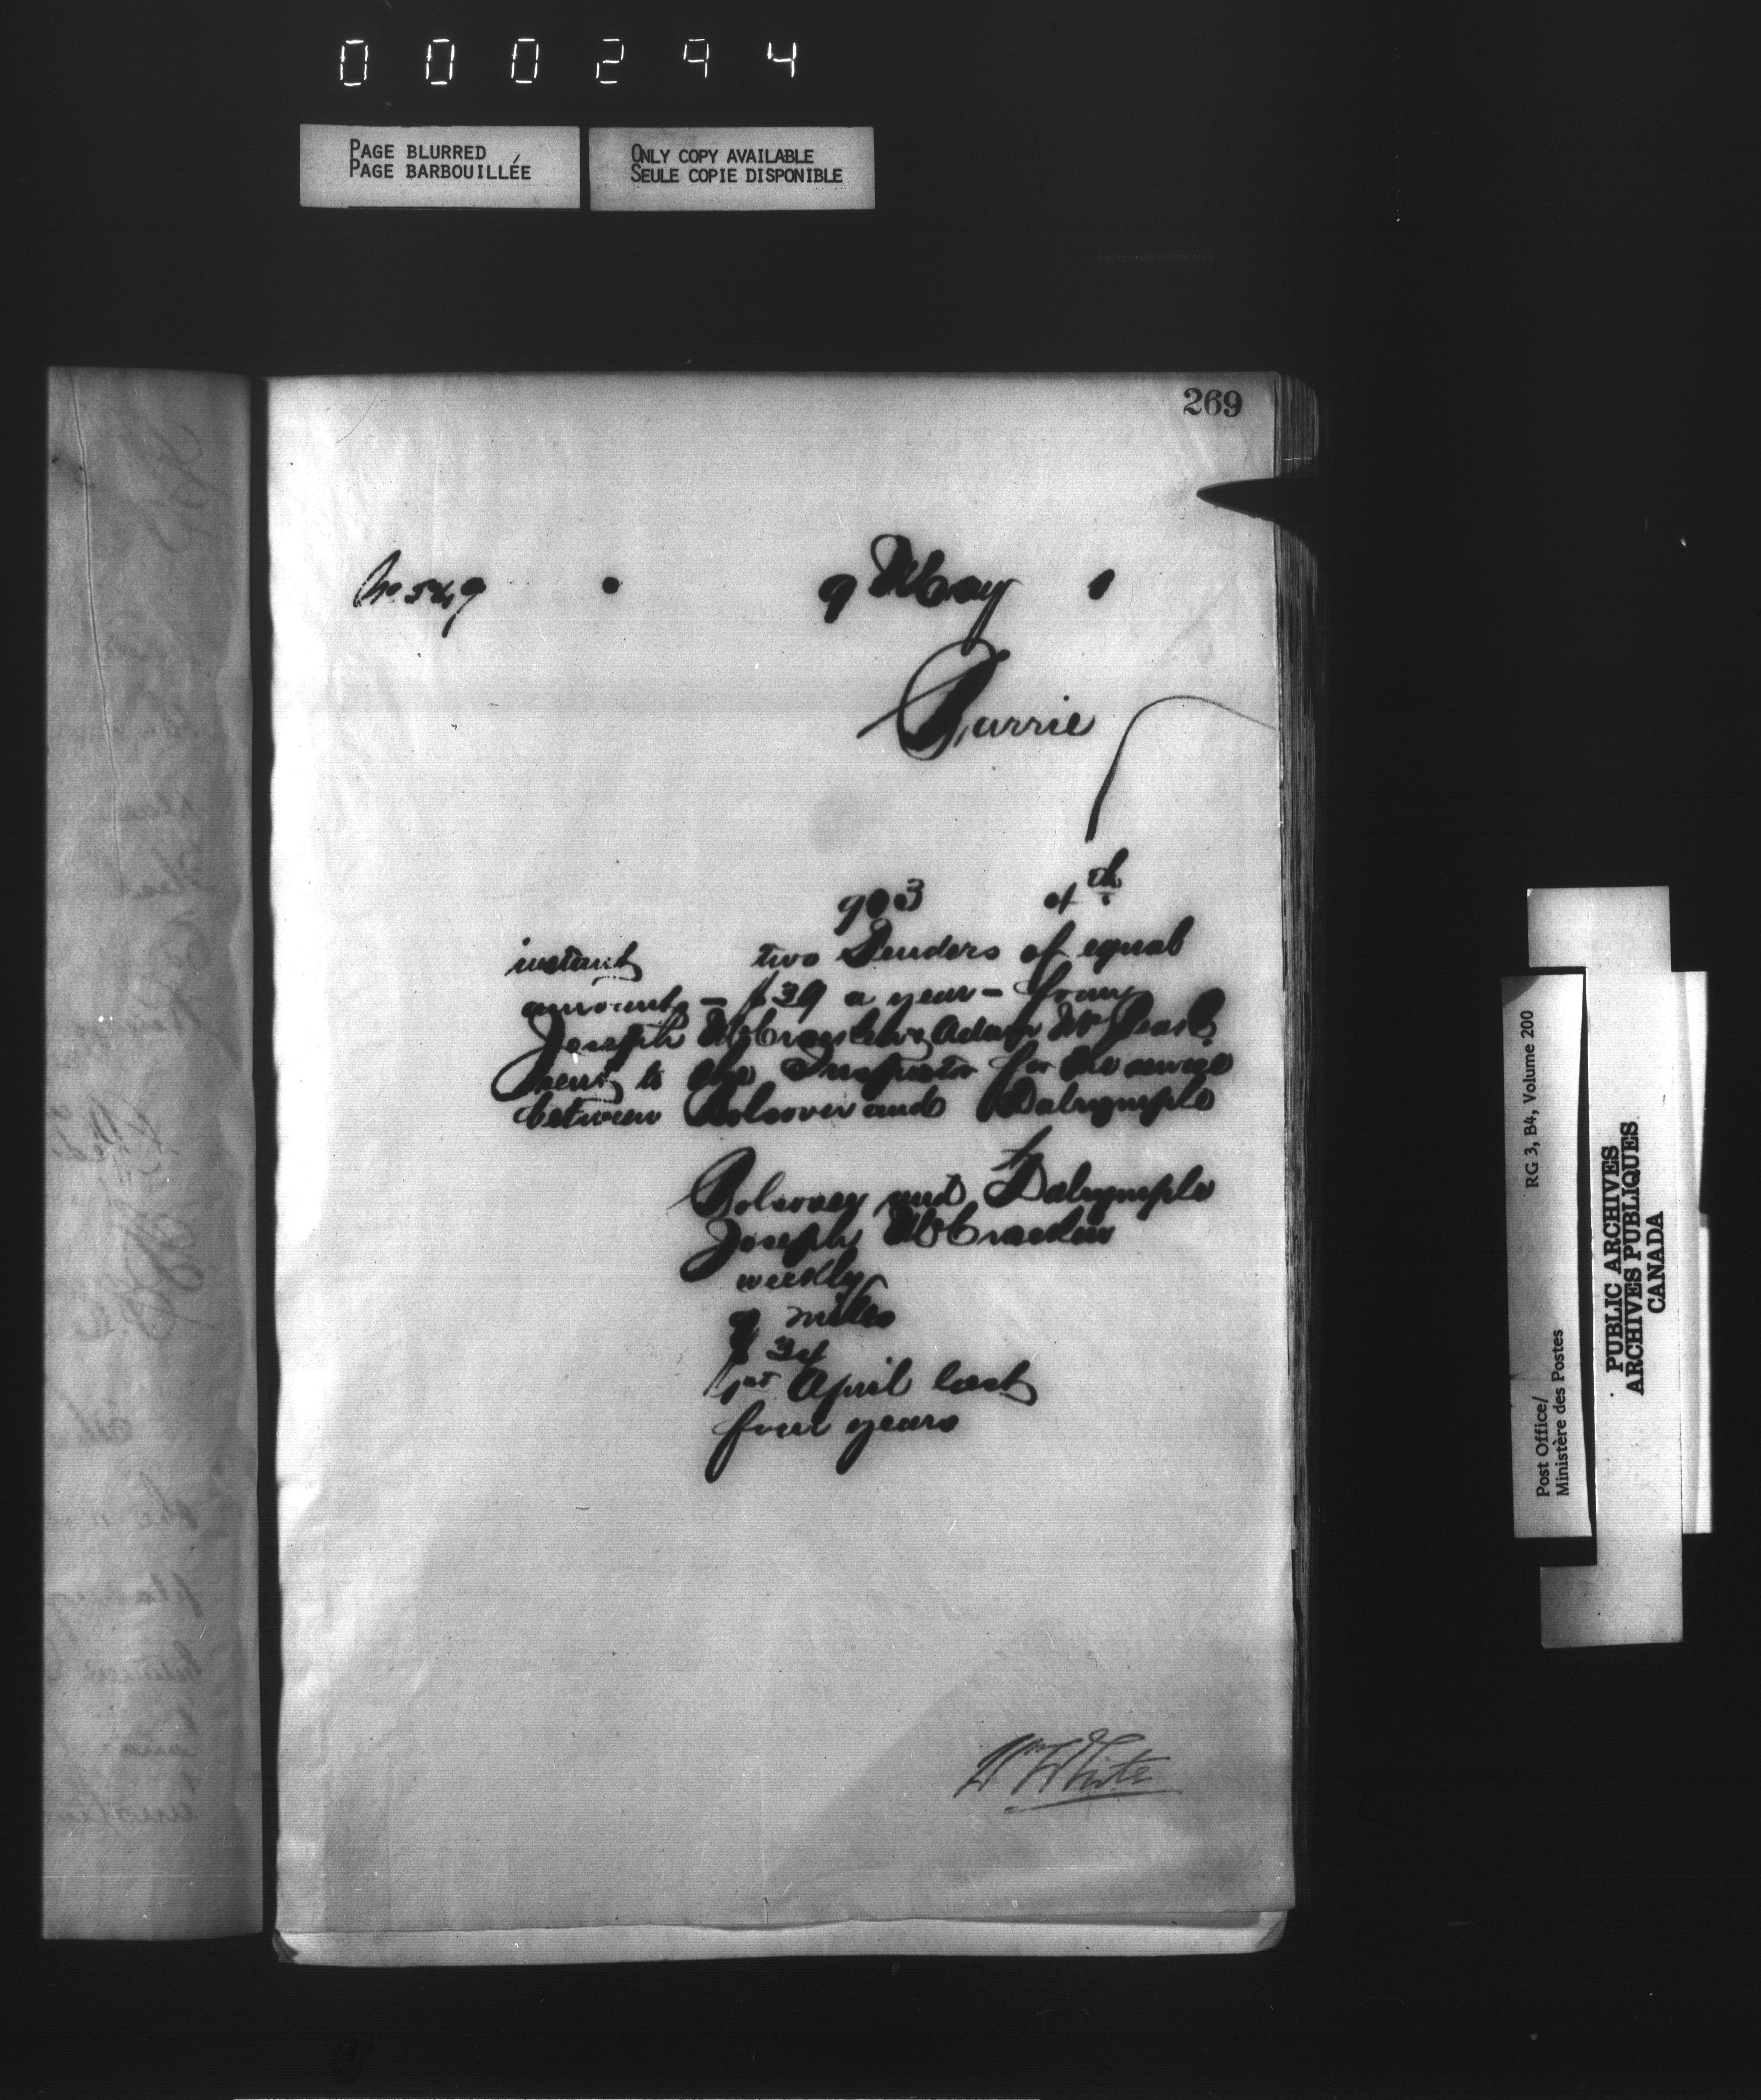 000294
PAGE BLURRED
PAGE BARBOUILLÉE
ONLY COPY AVAILABLE
SEULE COPIE DISPONIBLE
269
No. 549
9 May 1
Barrie
903 of th
instant two Tenders of equal
amount - $39 a year - from
Joseph McCracken & Adam
sent to the Inspector for the service
between Bolsover and Dalrymple
Bolsover and Dalrymple
Joseph McCracken
weekly
9 miles
$ 39
1st April last
four years
Wm White
RG 3, B4, Volume 200
Post Office/
Ministère des Postes
PUBLIC ARCHIVES
ARCHIVES PUBLIQUES
CANADA